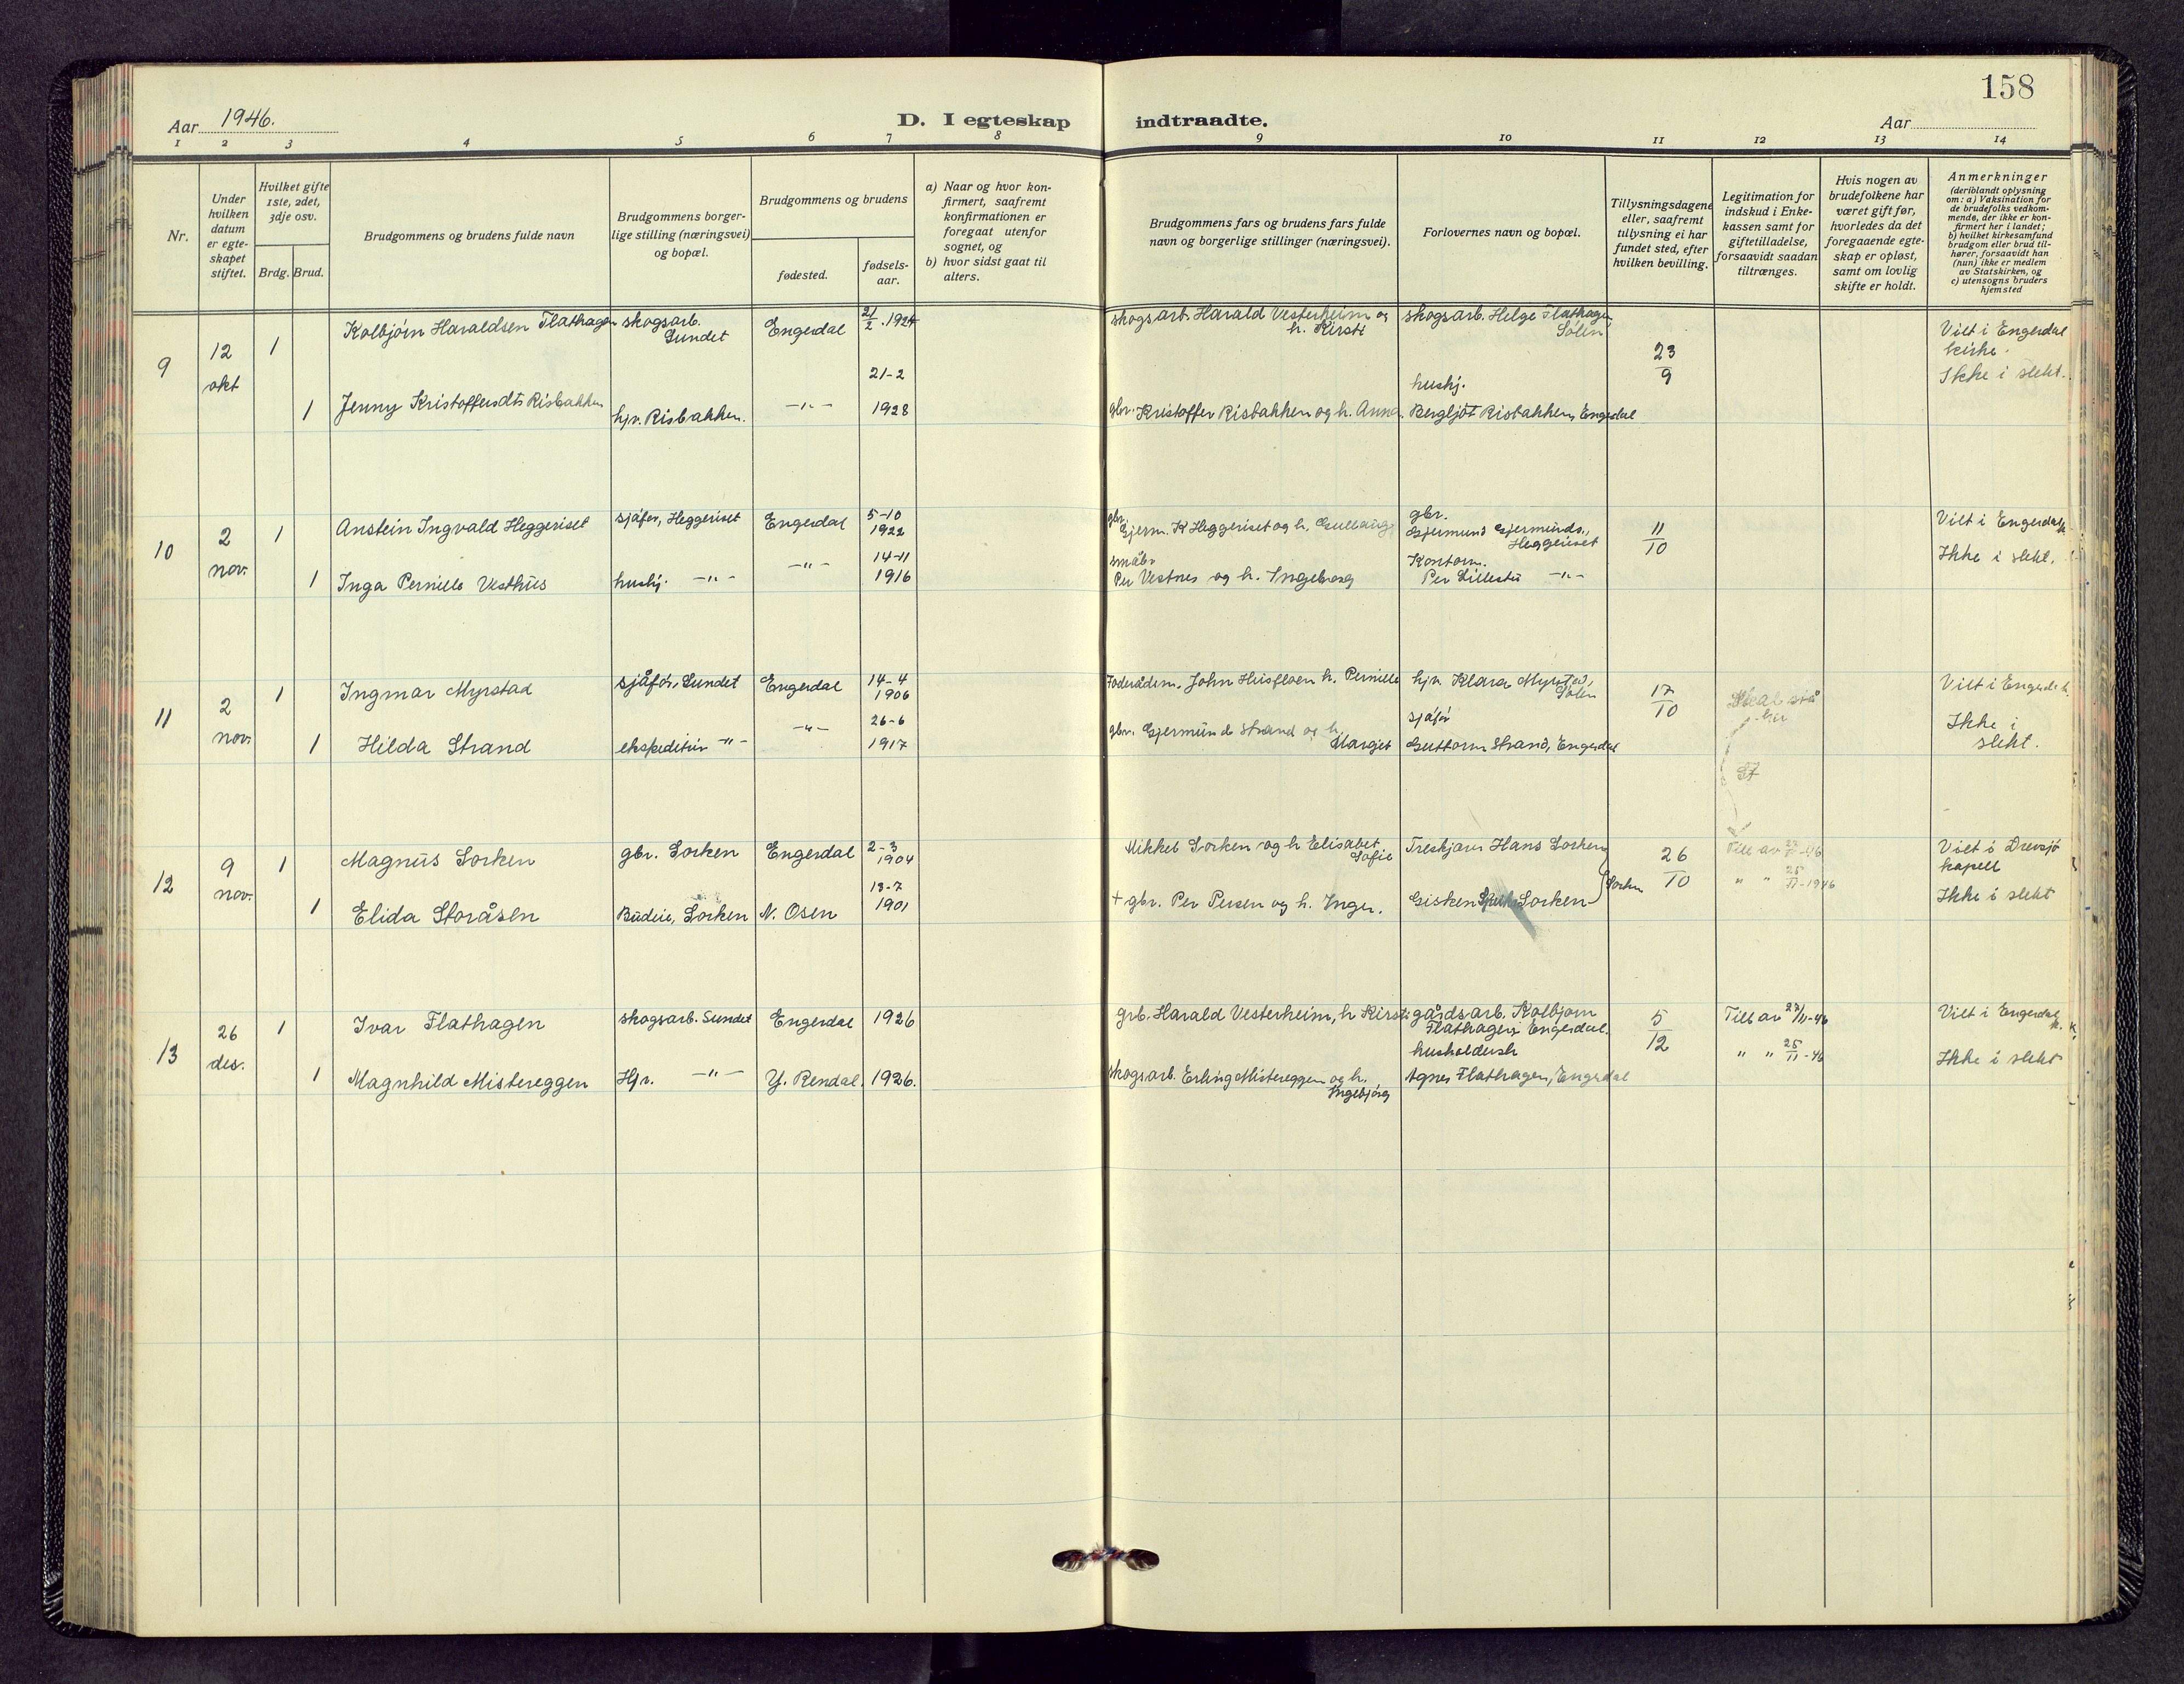 158
Aar 1946.
D. I egteskap indtraadte.
Aar
1 2 3 4 5 6 7 8 9 10 11 12 13 14
Nr.
Under hvilken datum er egte- skapet stiftet.
Hvilket gifte 1ste, 2det, 3dje osv.
Brdg. Brud.
Brudgommens og brudens fulde navn
Brudgommens borger- lige stilling (næringsvei) og bopæl.
Brudgommens og brudens
fødested.
fødsels- aar.
a) Naar og hvor kon- firmert, saafremt konfirmationen er foregaat utenfor sognet, og
b) hvor sidst gaat til alters.
Brudgommens fars og brudens fars fulde navn og borgerlige stillinger (næringsvei).
Forlovernes navn og bopæl.
Tillysningsdagene eller, saafremt tillysning ei har fundet sted, efter hvilken bevilling.
Legitimation for indskud i Enke- kassen samt for giftetilladelse, forsaavidt saadan tiltrænges.
Hvis nogen av brudefolkene har været gift før, hvorledes da det foregaaende egte- skap er opløst, samt om lovlig skifte er holdt.
Anmerkninger
(deriblandt oplysning om: a) Vaksination for de brudefolks vedkom- mende, der ikke er kon- firmert her i landet; b) hvilket kirkesamfund brudgom eller brud til- hører, forsaavidt han (hun) ikke er medlem av Statskirken, og c) utensogns bruders hjemsted
9 12 okt 1 Kolbjørn Haraldsen Flathagen skogsarb. Sundet Engerdal 21/2 1924 skogsarb. Harald Vesterheim og h. Kirsti skogsarb. Helge Flathagen Sølen 23/9 Vilt i Engerdal kirke. Ikke i slekt.
1 Jenny Kristoffersdtr Risbakken hjv. Risbakken. -"- 21-2 1928 gbr. Kristoffer Risbakken og h. Anna. hushj. Bergljot Risbakken, Engerdal
10 2 nov. 1 Anstein Ingvald Heggeriset sjåfør, Heggeriset Engerdal 5-10 1922 gbr. Gjerm. K Heggeriset og h. Gullaug gbr. Gjermund Gjermunds., Heggeriset 11/10 Vilt i Engerdal k. Ikke i slekt.
1 Inga Pernille Vesthus hushj. -"- -"- 14-11 1916 småbr Per Vestnes og h. Ingeborg Kontorm. Per Lillestu -"-
11 2 nov. 1 Ingmar Myrstad sjåfør, Sundet Engerdal 14-4 1906 Føderådsm. John Husfloen h. Pernille hjv. Klara Myrstad, Sølen 17/10 Skal stå her Vilt i Engerdal k. Ikke i slekt.
1 Hilda Strand ekspeditør -"- -"- 26-6 1917 gbr. Gjermund Strand og h. Marget sjåfør Guttorm Strand, Engerdal
12 9 nov. 1 Magnus Sorken gbr. Sorken Engerdal 2-3 1904 Mikkel Sorken og h Elisabet Sofie Treskjærer Hans Sorken 26/10 Till av 23/11-46 Vilt i Drevsjø kapell Ikke i slekt
1 Elida Storåsen Budeie, Sorken N. Osen 13-7 1901 + gbr. Per Persen og h. Inger. Gisken Sorken } Sorken " " 25/11-1946
13 26 des. 1 Ivar Flathagen skogsarb. Sundet Engerdal 1926 grb. Harald Vesterheim, h Kirsti gårdsarb. Kolbjørn Flathagen Engerdal. 5/12 Till av 23/11-46 Vilt i Engerdal k. Ikke i slekt
1 Magnhild Mistereggen Hjv. -"- Y. Rendal. 1926. skogsarb. Erling Mistereggen og h. Ingebjørg husholdersk Agnes Flathagen, Engerdal " " 25/11-46